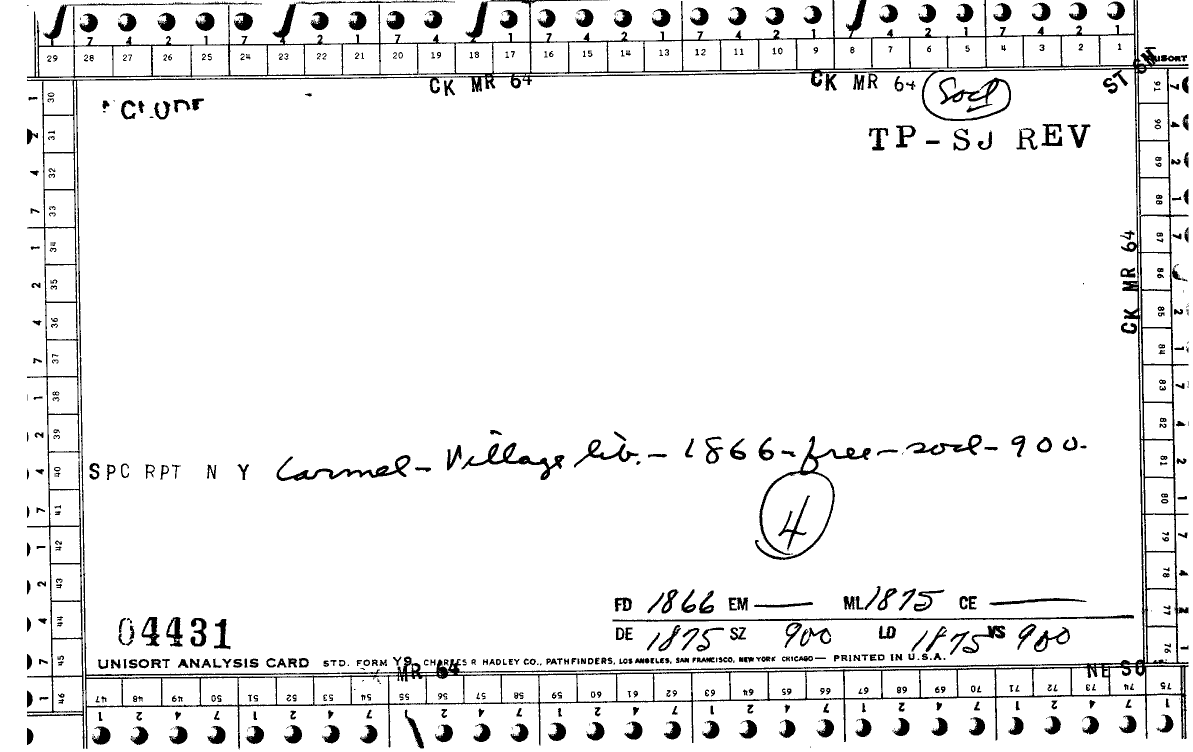 7 4 2 1 7 4 2 1 7 4 2 1 7 4 2 1 7 4 2 1 7 4 2 1 7 4 2 1
29 28 27 26 25 24 23 22 21 20 19 18 17 16 15 14 13 12 11 10 9 8 7 6 5 4 3 2 1
CK MR 64 CK MR 64 Socl ST SM UNISORT
TP-SJ REV
CK MR 64
SPC RPT N Y Carmel - Village lib. - 1866 - free - socl - 900-
4
FD 1866 EM — ML 1875 CE —
DE 1875 SZ 900 LD 1875 VS 900
04431
UNISORT ANALYSIS CARD STD. FORM Y9 CHARLES R HADLEY CO., PATHFINDERS, LOS ANGELES, SAN FRANCISCO, NEW YORK CHICAGO — PRINTED IN U.S.A.
MR 64 NE SO
30 31 32 33 34 35 36 37 38 39 40 41 42 43 44 45 46
47 48 49 50 51 52 53 54 55 56 57 58 59 60 61 62 63 64 65 66 67 68 69 70 71 72 73 74 75
76 77 78 79 80 81 82 83 84 85 86 87 88 89 90 91